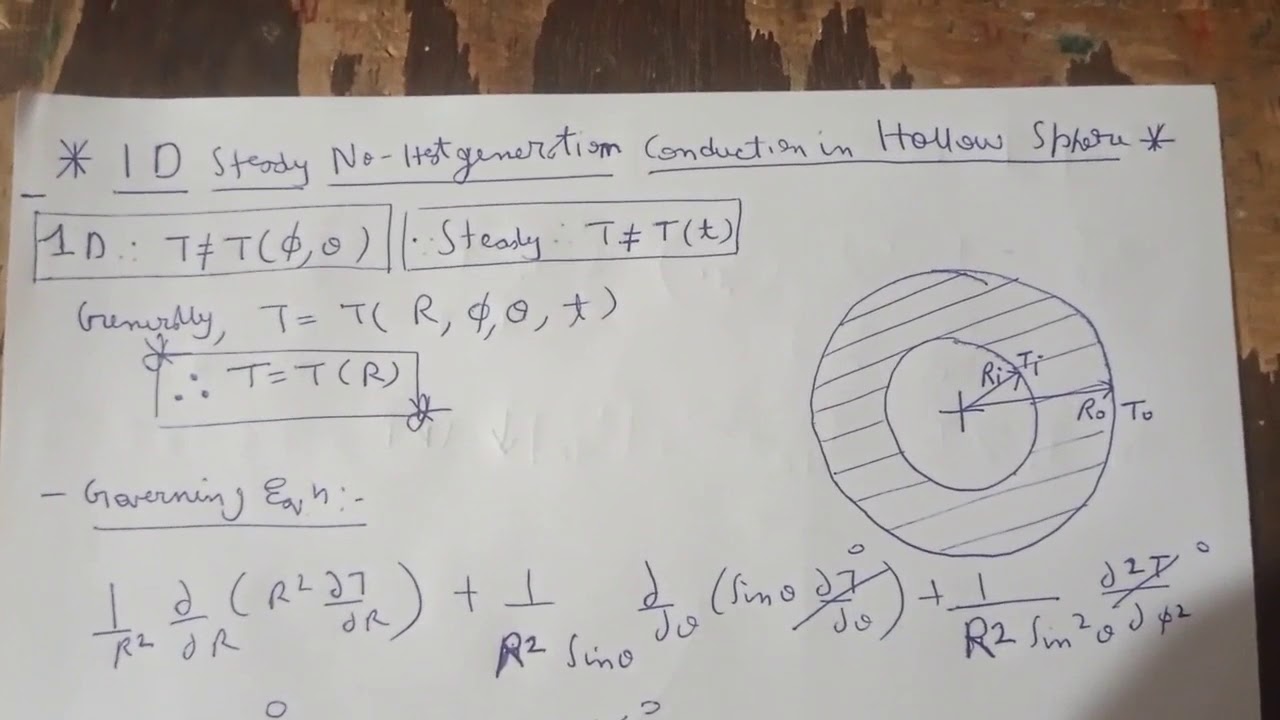 * 1D Steady No-Heat generation Conduction in Hollow Sphere *
1D ∴ T ≠ T(φ, θ) ∵ Steady : T ≠ T(t)
Generally, T = T( R, φ, θ, t )
∴ T = T(R)
Ri Ti
Ro To
- Governing Eqn :-
1/R² ∂/∂R ( R² ∂T/∂R ) + 1/(R² Sinθ) ∂/∂θ (Sinθ ∂T/∂θ) 0 + 1/(R² Sin²θ) ∂²T/∂φ² 0
0 0